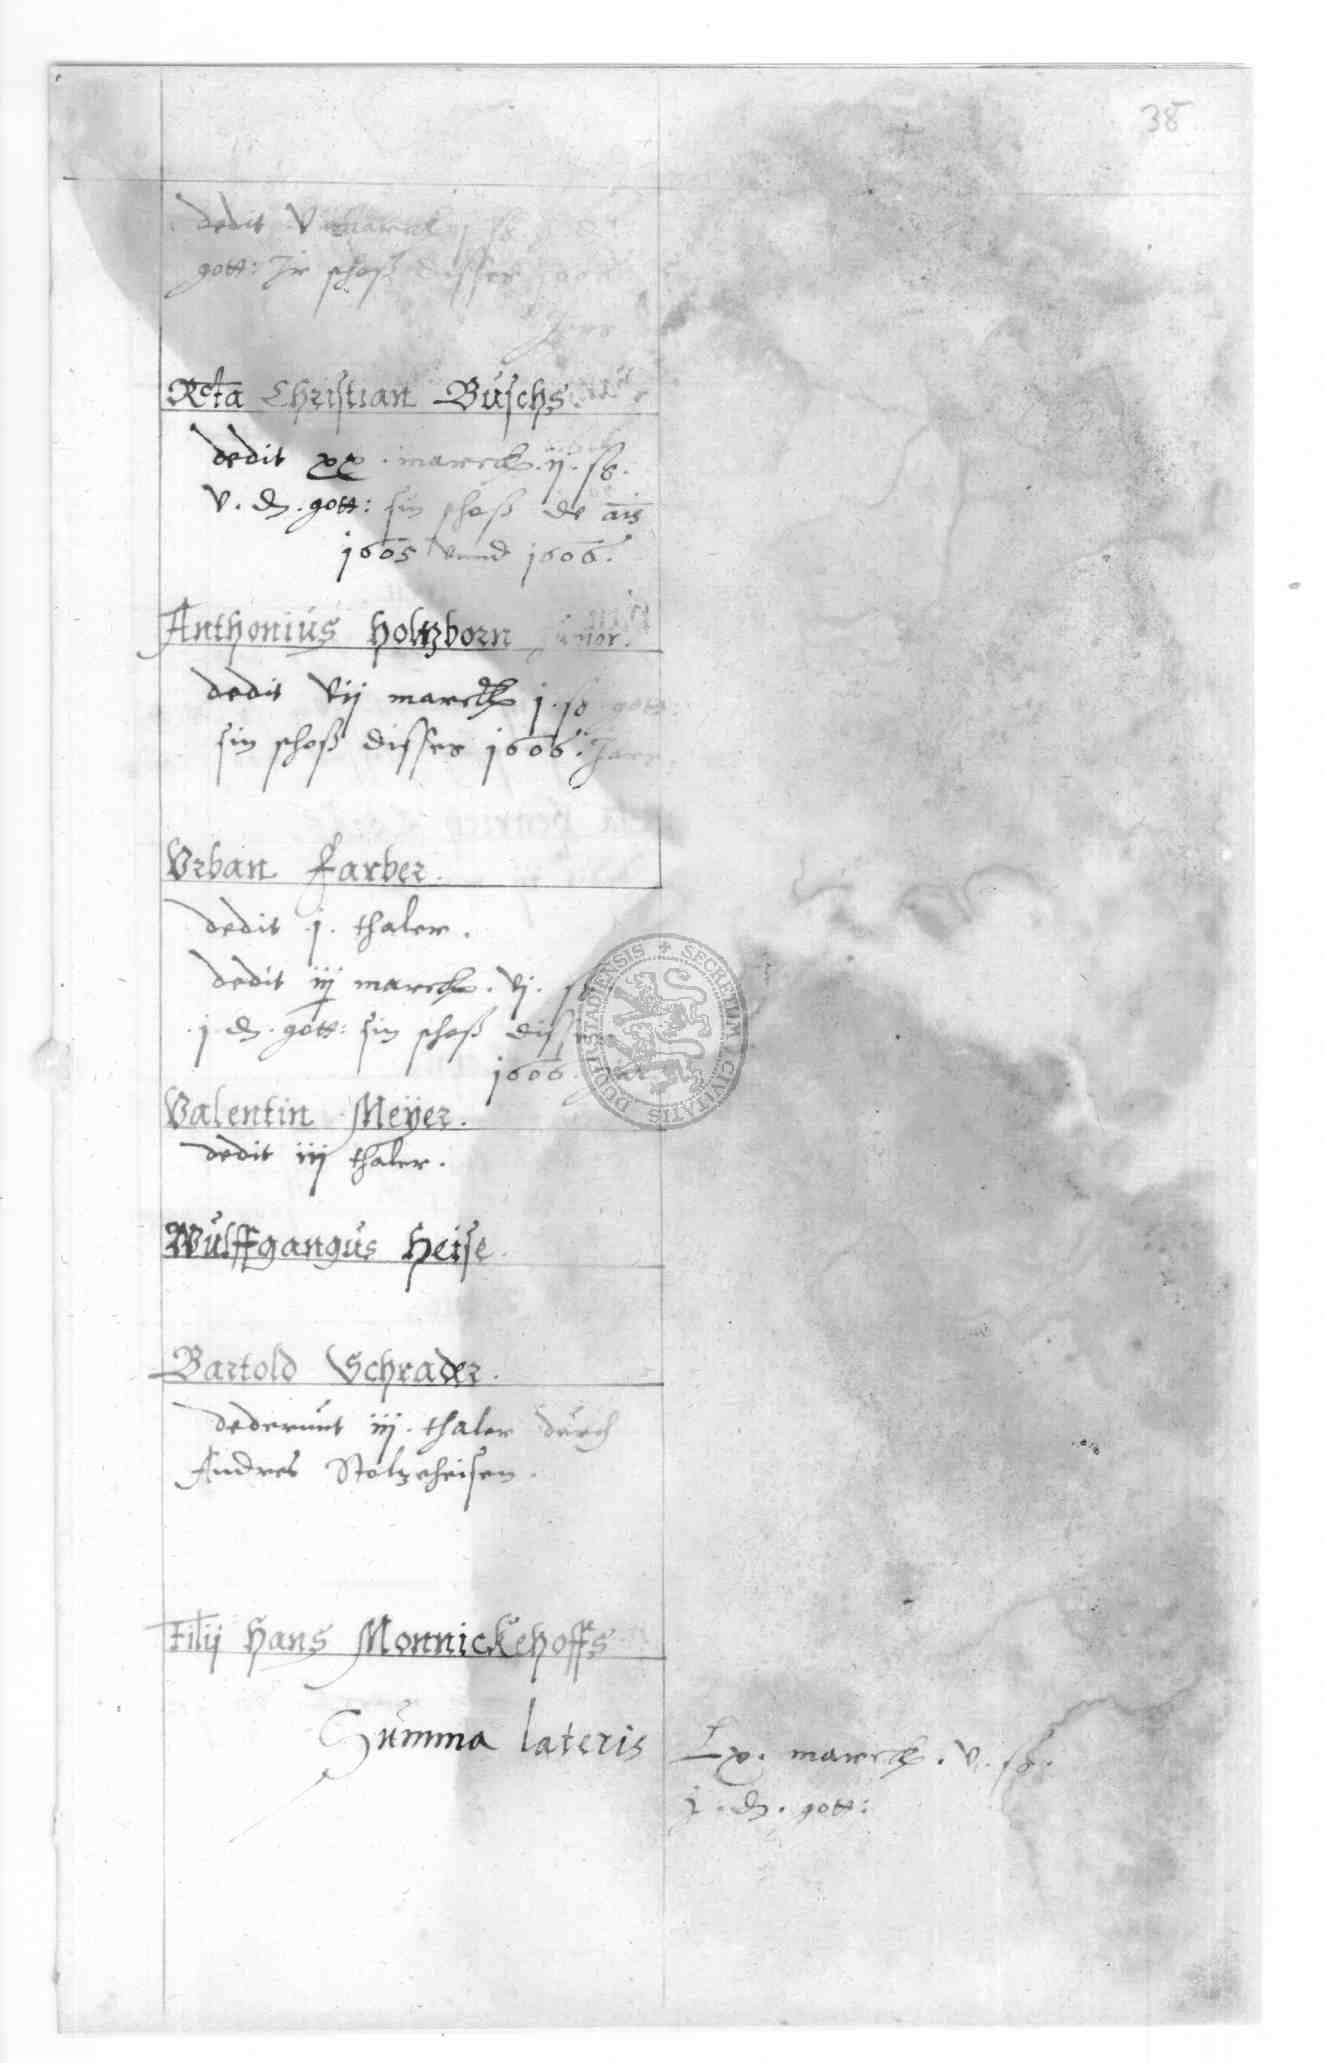 38
dedit V marck j ß
gott: Jr schoß disses
Jars
Rcta Christian Buschs.
dedit xx. marck. ij. ß.
V. d. gott: sin schoß de ais
1605 vnnd 1606.
Anthonius Holtzborn Junior.
dedit vij marck j. ß gott:
sin schoß disses 1606. Jars
Vrban Farber.
dedit .j. thaler.
dedit iij marck. vj. ß
.j. d. gott: sin schoß disses
1606. Jars
Valentin Meÿer.
dedit iij thaler.
Wulffgangus Heise.
Bartold Schrader.
dederunt iij. thaler durch
Andres Stoltzeheisen.
Filij Hans Monnickehoffs
Summa lateris Lx. marck. v. ß.
j. d. gott:
SECRETUM CIVITATIS DUDERSTADIENSIS